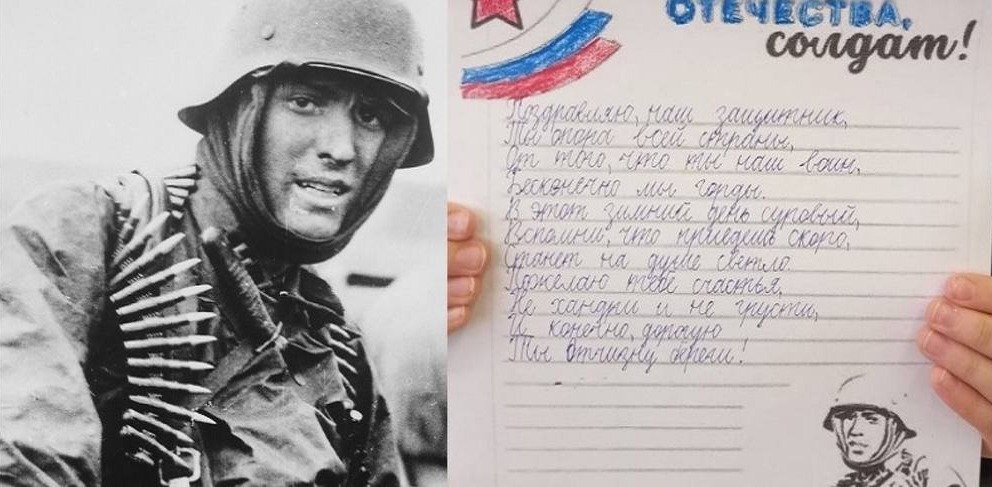 ОТЕЧЕСТВА,
солдат!
Поздравляю, наш защитник,
Ты опора всей страны,
От того, что ты наш воин.
Бесконечно мы горды.
В этот зимний день суровый,
Вспомни, что приедешь скоро,
Станет на душе светло.
Пожелаю тебе счастья,
Не хандри и не грусти,
И конечно, дорогую
Ты Отчизну береги!